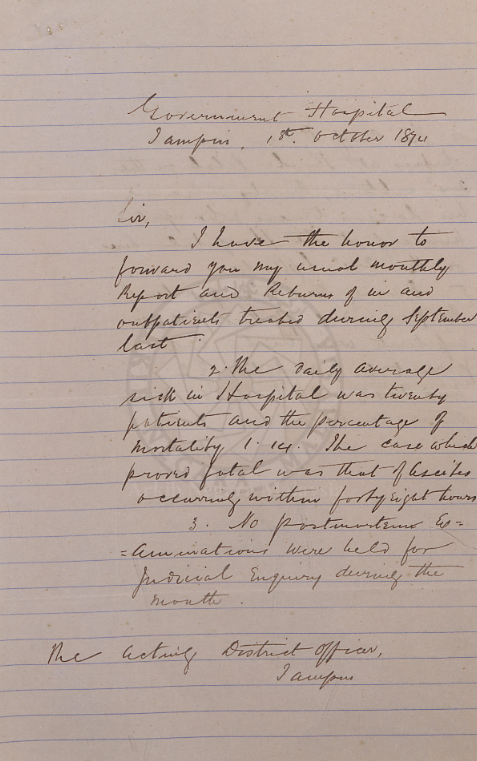 Government Hospital
Jampin, 1st. October 1894
Sir,
I have the honor to
forward you my usual monthly
Report and Returns of in and
outpatients treated during September
last.
2. The daily average
sick in Hospital was twenty
patients and the percentage of
mortality 1.14. The case which
proved fatal was that of ascites
occurring within forty eight hours
3. No postmortem Ex=
=aminations were held for
Judicial Enquiry during the
month.
The Acting District Officer,